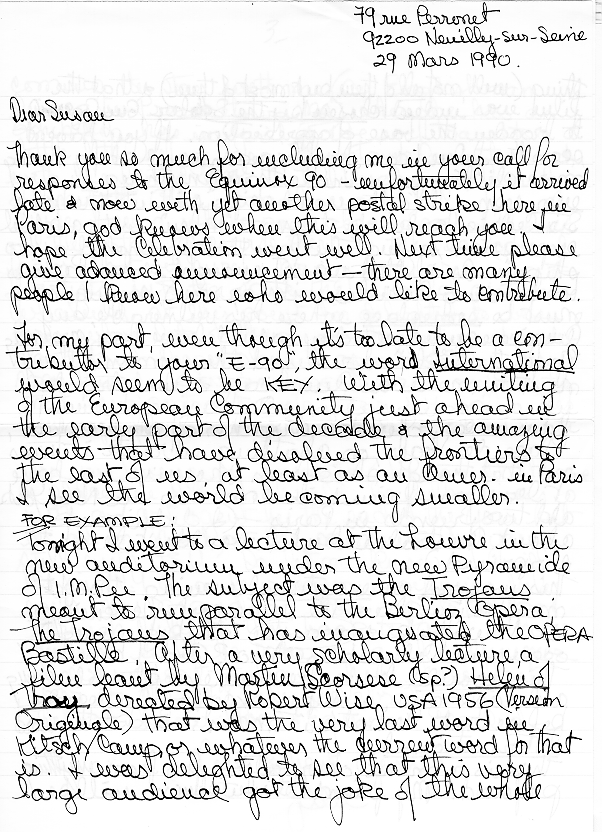 79 rue Perronet
92200 Neuilly-sur-Seine
29 Mars 1990.
Dear Susan
Thank you so much for including me in your call for
responses to the Equinox 90 - unfortunately it arrived
late & now with yet another postal strike here in
Paris, god knows when this will reach you. I
hope the Celebration went well. Next time please
give advanced announcement - there are many
people I know here who would like to contribute.
For my part, even though it's too late to be a con-
tributor to your "E-90", the word International
would seem to be KEY. With the uniting
of the European Community just ahead in
the early part of the decade & the amazing
events that have disolved the frontiers to
the East of us, at least as an Amer. in Paris
I see the world becoming smaller.
FOR EXAMPLE:
Tonight I went to a lecture at the Louvre in the
new auditorium under the new Pyramide
of I.M. Pei. The subject was the Trojans
meant to run parallel to the Berlioz Opera.
The Trojans, that has inaugurated the OPERA
Bastille. After a very scholarly lecture, a
film leant by Martin Scorsese (sp?) Helen of
Troy directed by Robert Wise, USA 1956 (Version
Originale) that was the very last word in
Kitsch/Camp or whatever the current word for that
is. I was delighted to see that this very
large audience got the joke of the whole